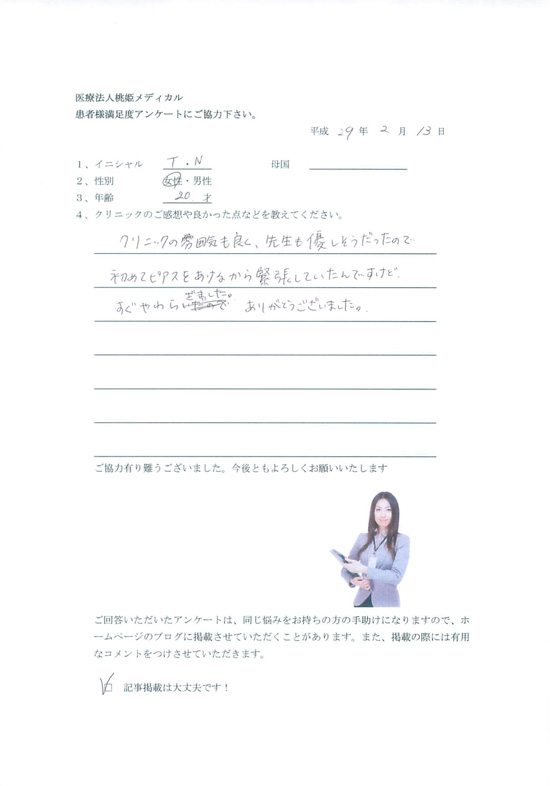 医療法人桃姫メディカル
患者様満足度アンケートにご協力下さい。
平成 29 年 2 月 13 日
1、イニシャル T．N 母国
2、性別 女性・男性
3、年齢 20 才
4、クリニックのご感想や良かった点などを教えてください。
クリニックの雰囲気も良く、先生も優しそうだったので
初めてピアスをあけるから緊張していたんですけど、
すぐやわらぎました。 ありがとうございました。
ご協力有り難うございました。今後ともよろしくお願いいたします
ご回答いただいたアンケートは、同じ悩みをお持ちの方の手助けになりますので、ホ
ームページのブログに掲載させていただくことがあります。また、掲載の際には有用
なコメントをつけさせていただきます。
記事掲載は大丈夫です！